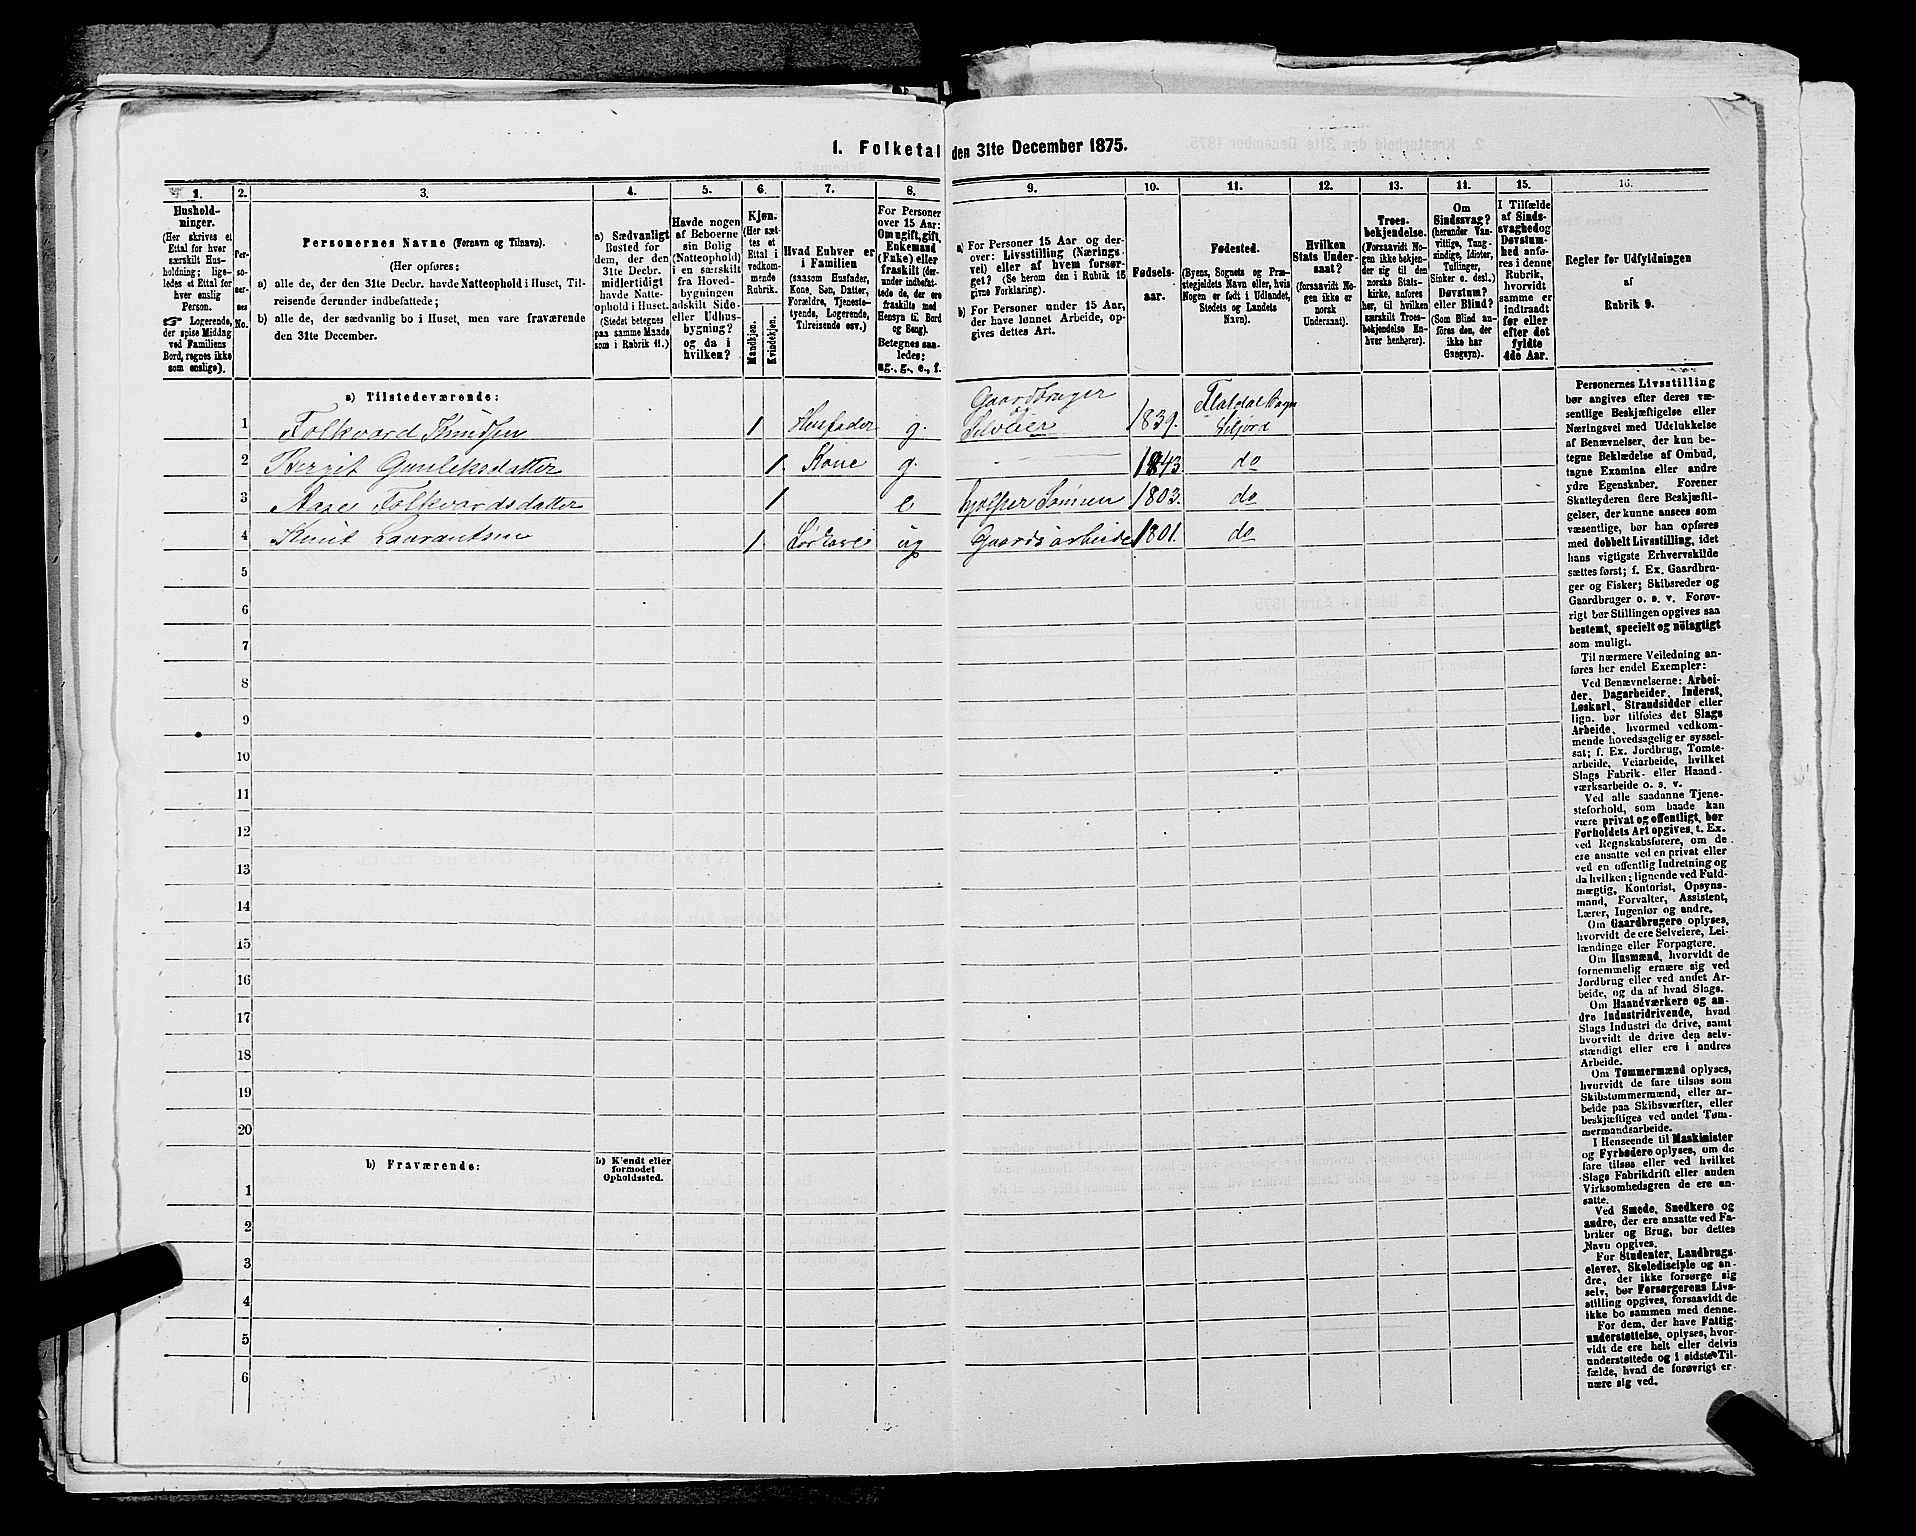 1. Folketal den 31te December 1875.
1.
2.
3.
4.
5.
6.
7.
8.
9.
10.
11.
12.
13.
14.
15.
16.
Hushold-
ninger.
(Her skrives et
Ettal for hver
særskilt Hus-
holdning; lige-
ledes et Ettal for
hver enslig
Person.
☞ Logerende,
der spise Middag
ved Familiens
Bord, regnes ikke
som enslige).
Per-
so-
ner-
nes
No.
Personernes Navne (Fornavn og Tilnavn).
(Her opføres:
a) alle de, der den 31te Decbr. havde Natteophold i Huset, Til-
reisende derunder indbefattede;
b) alle de, der sædvanlig bo i Huset, men vare fraværende
den 31te December.
a) Sædvanligt
Bosted for
dem, der den
31te Decbr.
midlertidigt
havde Natte-
ophold i Huset.
(Stedet betegnes
paa samme Maade
som i Rubrik 11.)
Havde nogen
af Beboerne
sin Bolig
(Natteophold)
i en særskilt
fra Hoved-
bygningen
adskilt Side-
eller Udhus-
bygning?
og da i
hvilken?
Kjøn.
(Her sæt-
tes et
Ettal i
vedkom-
mende
Rubrik.
Mandkjøn.
Kvindekjøn.
Hvad Enhver er
i Familien
(saasom Husfader,
Kone, Søn, Datter,
Forældre, Tjeneste-
tyende, Logerende,
Tilreisende osv.)
For Personer
over 15 Aar:
Om ugift, gift,
Enkemand
(Enke) eller
fraskilt (der-
under indbefat-
tede de, der ere
fraskilte med
Hensyn til Bord
og Seng).
Betegnes saa-
ledes:
ug., g., e., f.
a) For Personer 15 Aar og der-
over: Livsstilling (Nærings-
vei) eller af hvem forsør-
get? (Se herom den i Rubrik 16
givne Forklaring).
b) For Personer under 15 Aar,
der have lønnet Arbeide, op-
gives dettes Art.
Fødsels-
aar.
Fødested.
(Byens, Sognets og Præ-
stegjeldets Navn eller, hvis
Nogen er født i Udlandet,
Stedets og Landets
Navn).
Hvilken
Stats Under-
saat?
(forsaavidt No-
gen ikke er
norsk
Undersaat).
Troes-
bekjendelse.
(Forsaavidt No-
gen ikke bekjen-
der sig til den
norske Stats-
kirke, anføres
her, til hvilken
særskilt Troes-
bekjendelse En-
hver henhører).
Om
Sindssvag?
(herunder Van-
vittige, Tung-
sindige, Idioter,
Tullinger,
Sinker o. desl.)
Døvstum?
eller Blind?
(Som Blind an-
føres den, der
ikke har
Gangsyn).
I Tilfælde
af Sinds-
svaghed og
Døvstum-
hed anfø-
res i denne
Rubrik,
hvorvidt
samme er
indtraadt
før eller
efter det
fyldte
4de Aar.
Regler før Udfyldningen
af
Rubrik 9.
a) Tilstedeværende:
1 Folkvard Knudsen 1 Husfader g. Gaardbruger og Selveier 1839. Flatdal Sogn Seljord
2 Bergit Gunleksdatter 1 Kone g. 1843 do
3 Aase Folkvardsdatter 1 e hjelper Sønnen 1803. do
4 Knut Laurantsen 1 ug Gaardsarbeide 1801. do
5
6
7
8
9
10
11
12
13
14
15
16
17
18
19
20
b) Fraværende:
b) Kjendt eller
formodet
Opholdssted.
1
2
3
4
5
6
Personernes Livsstilling
bør angives efter deres væ-
sentlige Beskjæftigelse eller
Næringsvei med Udelukkelse
af Benævnelser, der kun be-
tegne Beklædelse af Ombud,
tagne Examina eller andre
ydre Egenskaber. Forener
Skatteyderen flere Beskjæfti-
gelser, der kunne ansees som
væsentlige, bør han opføres
med dobbelt Livsstilling, idet
hans vigtigste Erhvervskilde
sættes først; f. Ex. Gaardbru-
ger og Fisker; Skibsreder og
Gaardbruger o. s. v. Forøv-
rigt bør Stillingen opgives saa
bestemt, specielt og nöiagtigt
som muligt.
Til nærmere Veiledning an-
føres her endel Exempler:
Ved Benævnelserne: Arbei-
der, Dagarbeider, Inderst,
Løskarl, Strandsidder eller
lign. bør tilføies det Slags
Arbeide, hvormed vedkom-
mende hovedsagelig er syssel-
sat; f. Ex. Jordbrug, Tomte-
arbeide, Veiarbeide, hvilket
Slags Fabrik- eller Haand-
værksarbeide o. s. v.
Ved alle saadanne Tjene-
steforhold, som baade kan
være privat og offentligt, bør
Forholdets Art opgives, t. Ex.
ved Regnskabsførere, om de
ere ansatte ved en privat eller
ved en offentlig Indretning og
da hvilken; lignende ved Fuld-
mægtig, Kontorist, Opsyns-
mand, Forvalter, Assistent,
Lærer, Ingeniør og andre.
Om Gaardbrugere oplyses,
hvorvidt de ere Selveiere, Lei-
lændinge eller Forpagtere.
Om Husmænd, hvorvidt de
fornemmelig ernære sig ved
Jordbrug eller ved andet Ar-
beide, og da af hvad Slags.
Om Haandværkere og an-
dre Industridrivende, hvad
Slags Industri de drive, samt
hvorvidt de drive den selv-
stændigt eller ere i andres
Arbeide.
Om Tømmermænd oplyses,
hvorvidt de fare tilsøs som
Skibstømmermænd, eller ar-
beide paa Skibsværfter, eller
beskjæftiges ved andet Tøm-
mermandsarbeide.
I Henseende til Maskinister
og Fyrbødere oplyses, om de
fare tilsøs eller ved hvilket
Slags Fabrikdrift eller anden
Virksomhedsgren de ere an-
satte.
Ved Smede, Snedkere og
andre, der ere ansatte ved Fa-
briker og Brug, bør dettes
Navn opgives.
For Studenter, Landbrugs-
elever, Skoledisciple og an-
dre, der ikke forsørge sig
selv, bør Forsørgerens Livs-
stilling opgives, forsaavidt de
ikke bo sammen med denne.
For dem, der have Fattig-
understøttelse, oplyses, hvor-
vidt de ere helt eller delvis
understøttede og i sidste Til-
fælde, hvad de forøvrigt er-
nære sig ved.